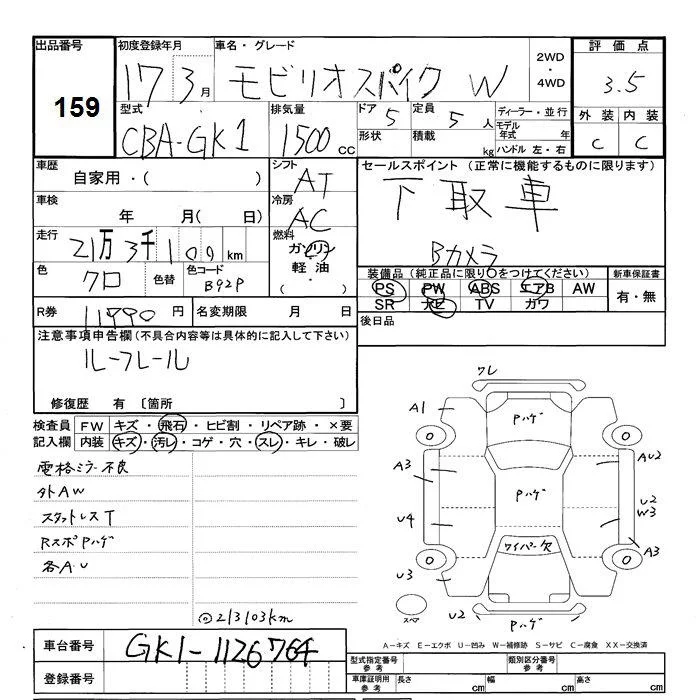 出品番号 初度登録年月 車名・グレード 評価点
159 17 3月 モビリオスパイク W 2WD・4WD 3.5
型式 排気量 ドア 5 定員 5人 ディーラー・並行 外装 内装
CBA-GK1 1500 CC 形状 積載 kg モデル年式 年 ハンドル 左・右 C C
車歴 シフト セールスポイント (正常に機能するものに限ります)
自家用・( ) AT 下取車
車検 冷房
年 月( 日) AC
走行 燃料 Bカメラ
21万3千100km ガソリン
色 色替 色コード 軽油 装備品(純正品に限り○をつけてください) 新車保証書
クロ B92P ・ PS PW ABS エアB AW 有・無
R券 11990円 名変期限 月 日 SR ナビ TV カワ
注意事項申告欄(不具合内容等は具体的に記入して下さい) 後日品
ルーフレール
修復歴 有 〔箇所 〕
検査員 FW キズ・飛石・ヒビ割・リペア跡・×要
記入欄 内装 キズ・汚レ・コゲ・穴・スレ・キレ・破レ
電格ミラー不良
外AW
スタットレスT
RスポPハゲ
各AU
◎213103km
ワレ
A1 Pハゲ
A3 AU2
Pハゲ U2
W3
U4
ワイパー欠 A3
U3
スペア U2 Pハゲ
A−キズ E−エクボ U−凹み W−補修跡 S−サビ C−腐食 XX−交換済
車台番号 GK1-1126764
型式指定番号 参考 類別区分番号 参考
登録番号 車庫証明用 参考 長さ cm 幅 cm 高さ cm